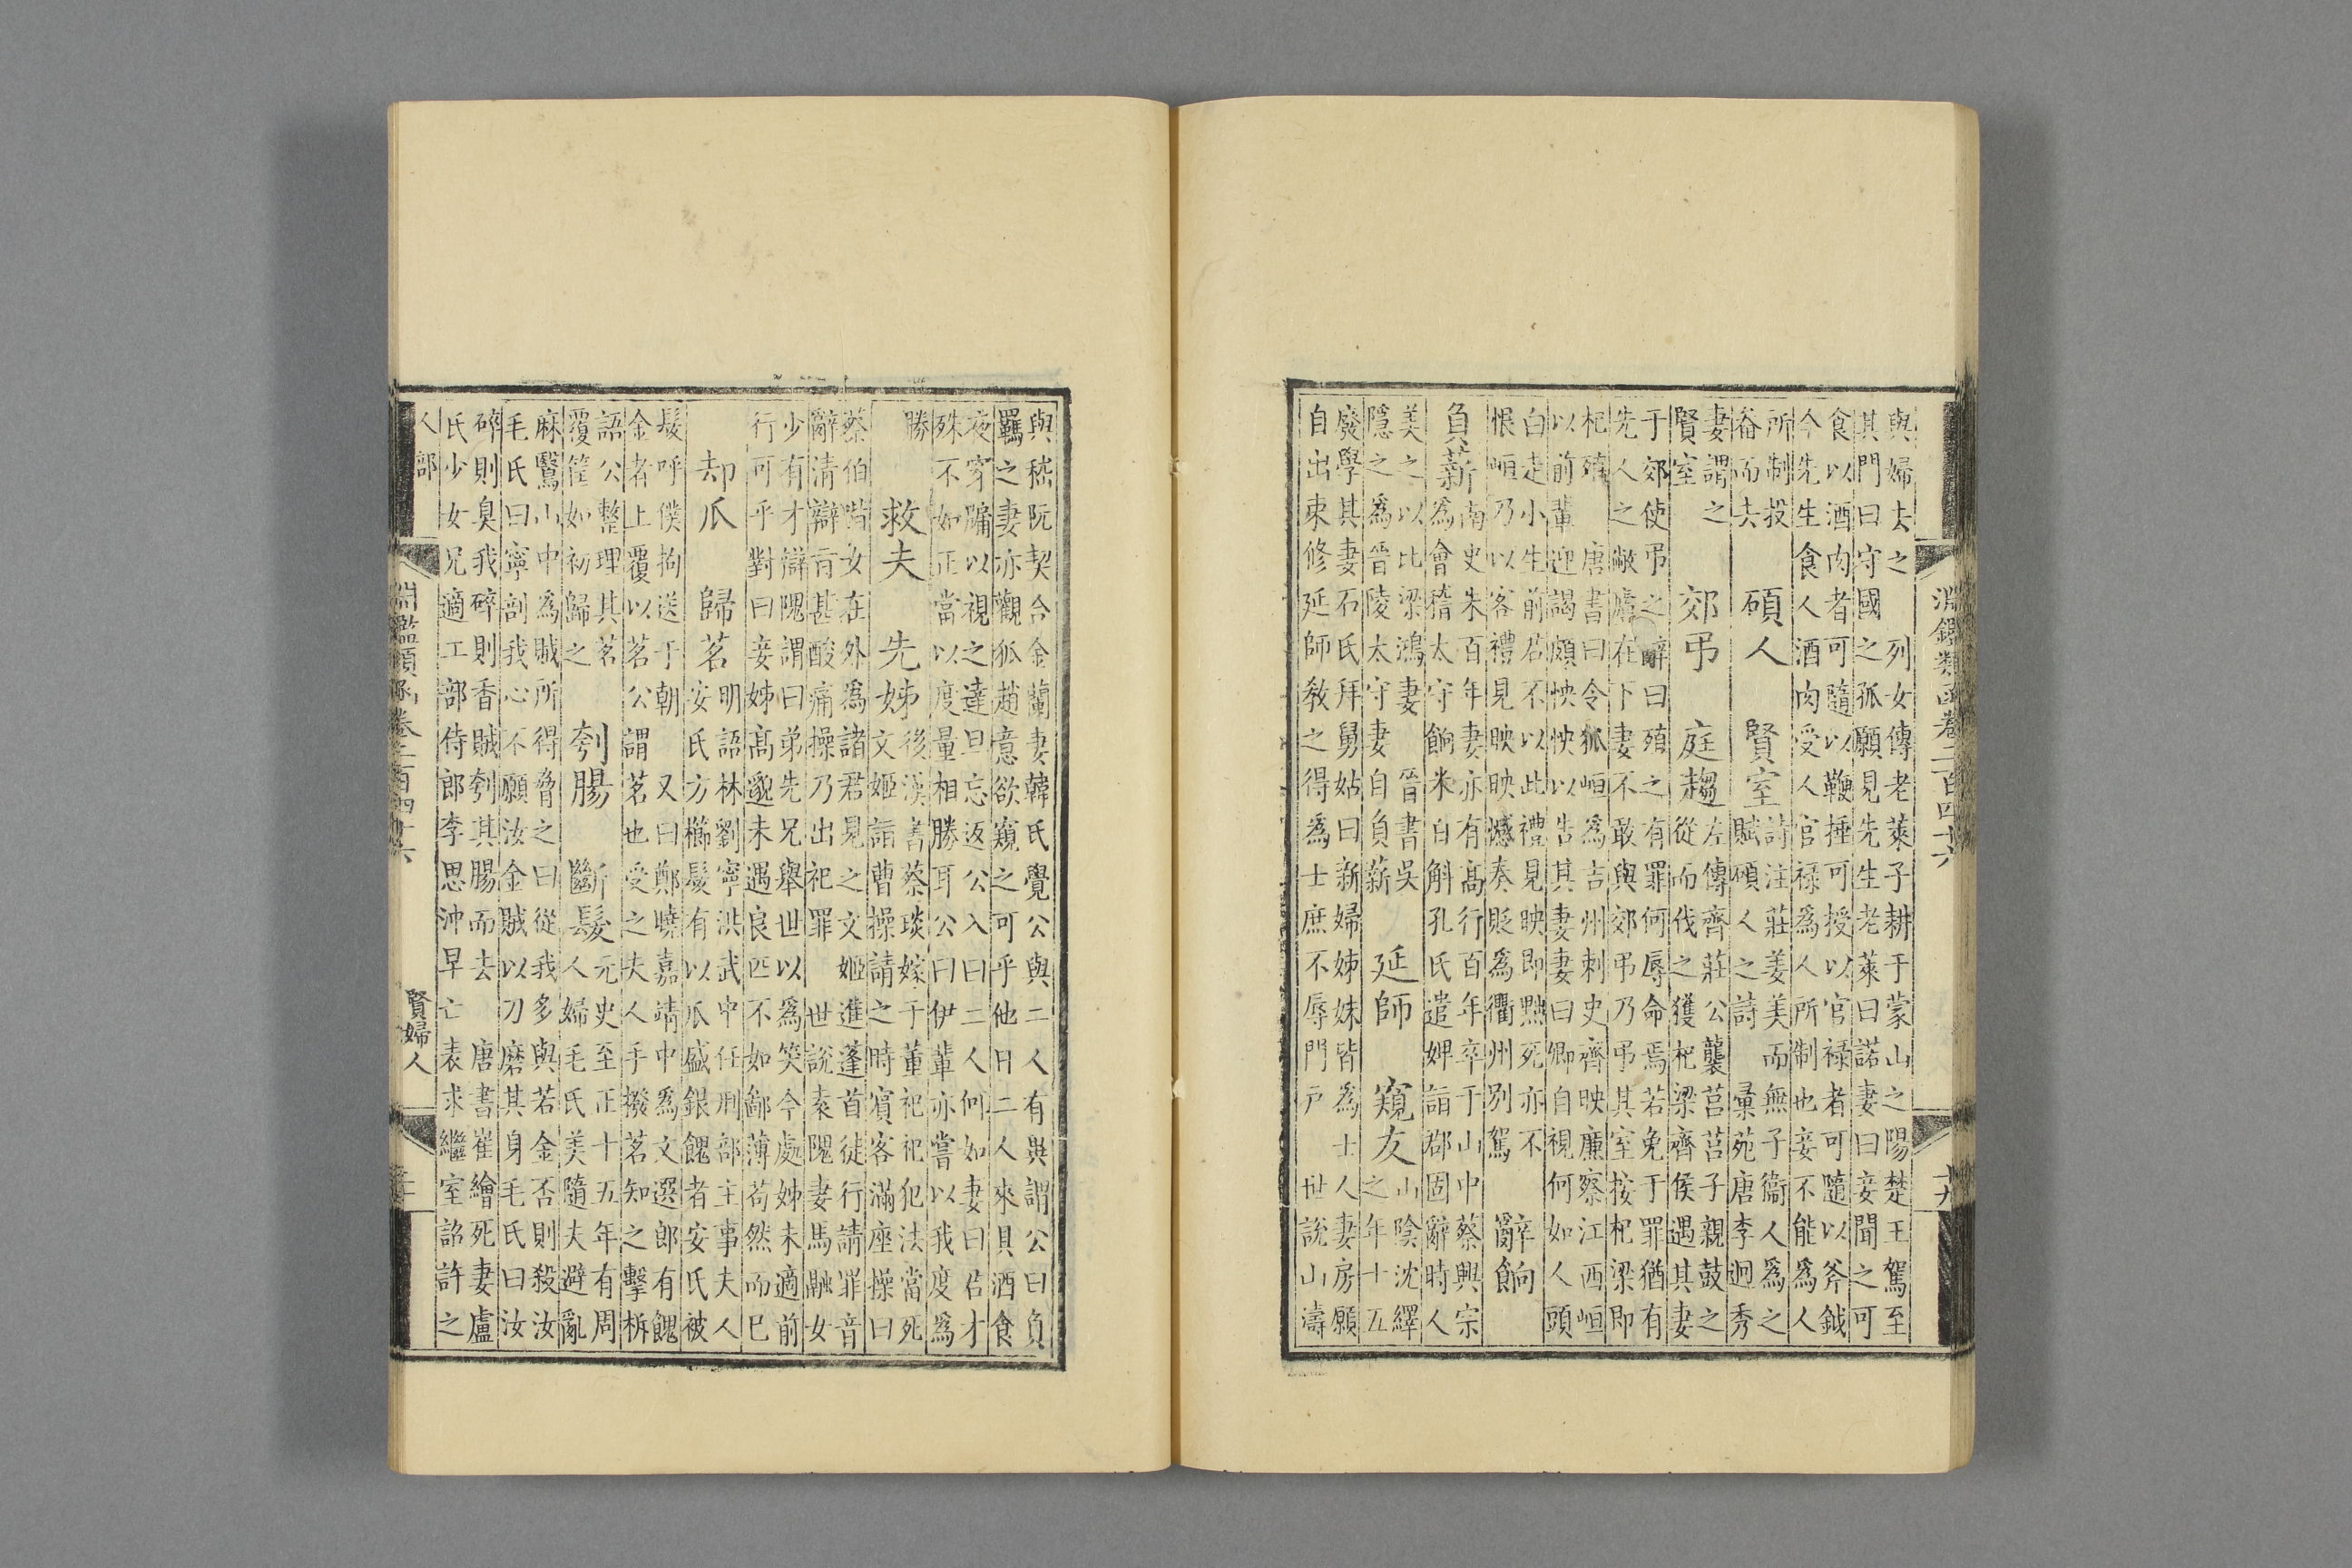 淵鑑類函卷二百四十六 十九
與婦去之 列女傳老萊子耕于蒙山之陽楚王駕至
其門曰守國之孤願見先生老萊曰諾妻曰妾聞之可
食以酒肉者可隨以鞭捶可授以官祿者可隨以斧鉞
今先生食人酒肉受人官祿為人所制也妾不能為人
所制投
畚而去
碩人 賢室
詩注莊姜美而無子衞人為之
賦碩人之詩 彙苑唐李迥秀
妻謂之
賢室
郊弔 庭趨
左傳齊莊公襲莒莒子親鼓之
從而伐之獲杞梁齊侯遇其妻
于郊使弔之辭曰殖之有罪何辱命焉若免于罪猶有
先人之敝廬在下妻不敢與郊弔乃弔其室按杞梁即
杞殖 唐書曰令狐峘為吉州刺史齊映廉察江西峘
以前輩迎謁頗怏怏以告其妻妻曰卿自視何如人頭
白走小生前君不以此禮見映即黜死亦不
恨峘乃以客禮見映映憾奏貶為衢州別駕
辭餉
負薪
南史朱百年妻亦有高行百年卒于山中蔡興宗
為會稽太守餉米百斛孔氏遣婢詣郡固辭時人
美之以比梁鴻妻 晉書吳
隱之為晉陵太守妻自負薪
延師 窺友
山陰沈繹
之年十五
廢學其妻石氏拜舅姑曰新婦姊妹皆為士人妻房願
自出束修延師教之得為士庶不辱門戶 世說山濤
與嵇阮契合金蘭妻韓氏覺公與二人有異謂公曰負
羈之妻亦觀狐趙意欲窺之可乎他日二人來具酒食
夜穿牖以視之達旦忘返公入曰二人何如妻曰君才
殊不如正當以度量相勝耳公曰伊輩亦嘗以我度為
勝
救夫 先姊
後漢書蔡琰嫁于董祀祀犯法當死
文姬詣曹操請之時賓客滿座操曰
蔡伯喈女在外為諸君見之文姬進蓬首徒行請罪音
辭清辯旨甚酸痛操乃出祀罪 世說袁隗妻馬融女
少有才辯隗謂曰弟先兄舉世以為笑今處姊未適前
行可乎對曰妾姊高邈未遇良匹不如鄙薄苟然而已
却爪 歸茗
明語林劉寧洪武中任刑部主事夫人
安氏方櫛髮有以爪盛銀餽者安氏被
髮呼僕拘送于朝 又曰鄭曉嘉靖中為文選郎有餽
金者上覆以茗公謂茗也受之夫人手撥茗知之擊柝
語公整理其茗
覆筐如初歸之
刳腸 斷髮
元史至正十五年有周
人婦毛氏美隨夫避亂
麻鷖山中為賊所得脅之曰從我多與若金否則殺汝
毛氏曰寧剖我心不願汝金賊以刀磨其身毛氏曰汝
碎則臭我碎則香賊刳其腸而去 唐書崔繪死妻盧
氏少女兄適工部侍郎李思沖早亡表求繼室詔許之
人部 淵鑑類函卷二百四十六 賢婦人